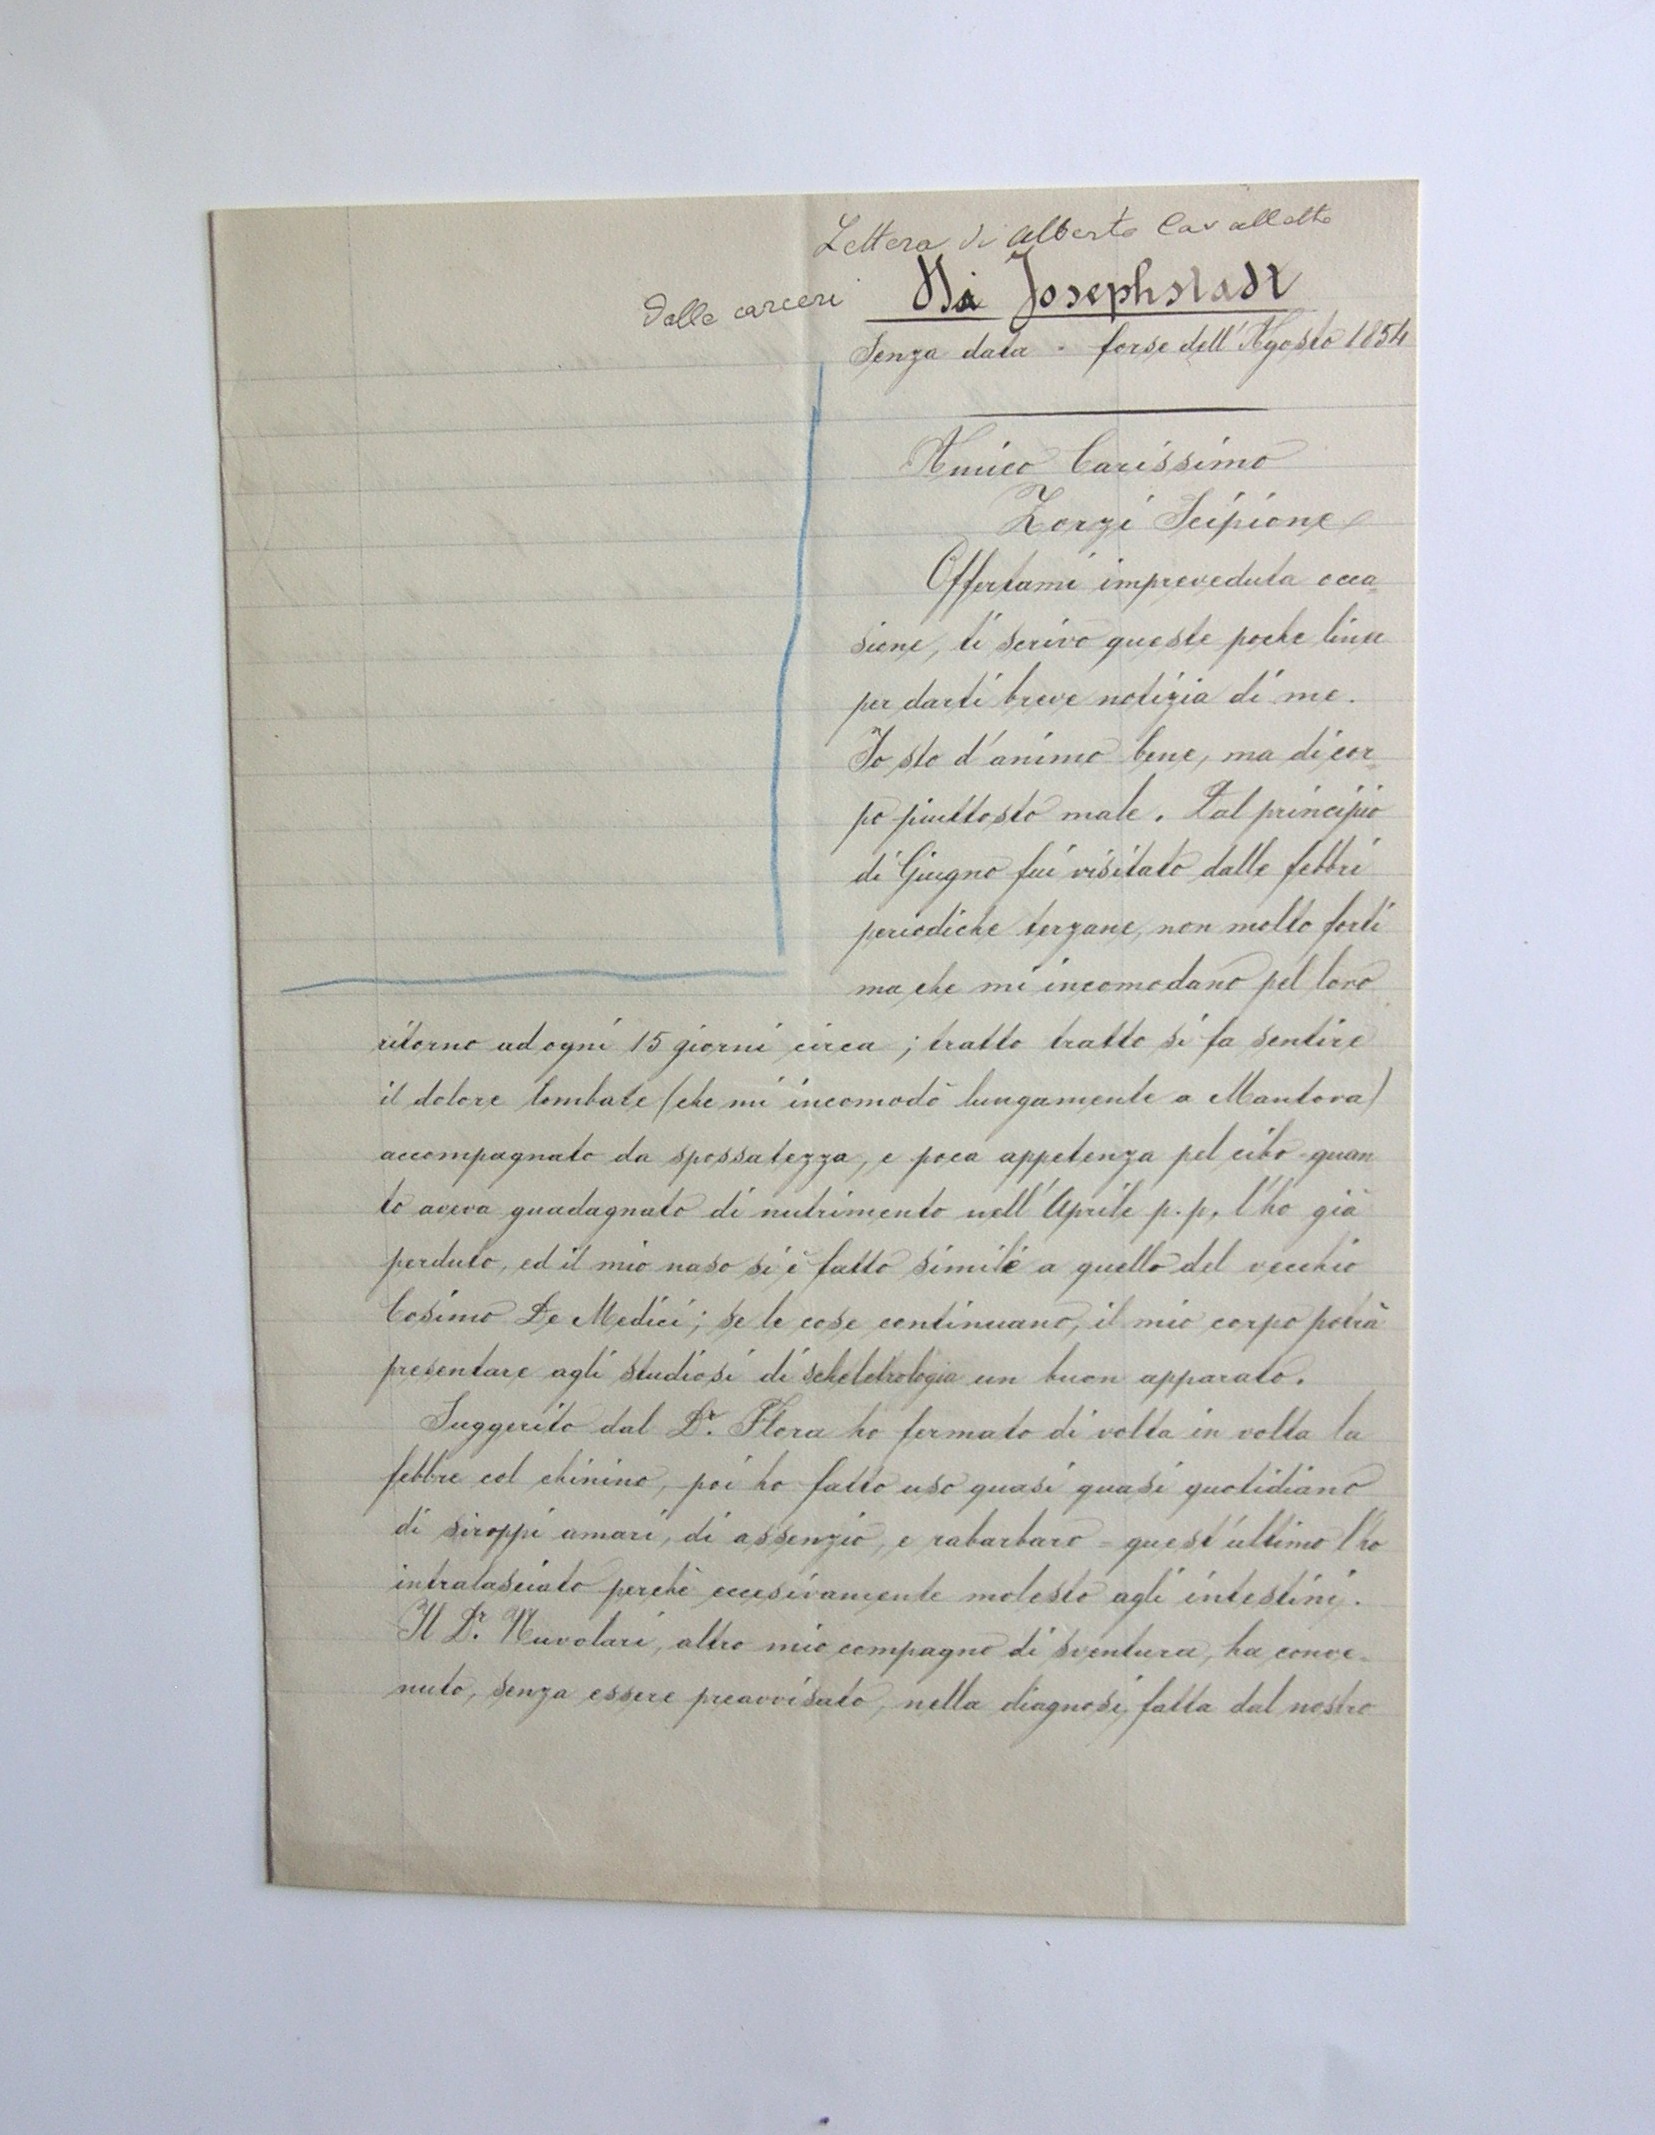 Lettera di Alberto Cavalletto
dalle carceri Di Josephstadt
Senza data - forse dell'Agosto 1854
Amico Carissimo
Zorzi Scipione
Offertami impreveduta occa=
sione, ti scrivo queste poche linee
per darti breve notizia di me.
Io sto d'animo bene, ma di cor=
po piuttosto male. Dal principio
di Giugno fui visitato dalle febbri
periodiche terzane, non molto forti
ma che mi incomodano pel loro
ritorno ad ogni 15 giorni circa; tratto tratto si fa sentire
il dolore lombale (che mi incomodò lungamente a Mantova)
accompagnato da spossatezza, e poca appetenza pel cibo - quan
to aveva guadagnato di nutrimento nell'Aprile p.p. l'ho già
perduto, ed il mio naso si è fatto simile a quello del vecchio
Cosimo De Medici; se le cose continuano, il mio corpo potrà
presentare agli studiosi di scheletrologia un buon apparato.
Suggerito dal Dr. Flora ho fermato di volta in volta la
febbre col chinino, poi ho fatto uso quasi quasi quotidiano
di siroppi amari, di assenzio, e rabarbaro = quest'ultimo l'ho
intralasciato perchè eccesivamente molesto agli intestini.
Il Dr. Nuvolari, altro mio compagno di sventura, ha conve-
nuto, senza essere preavvisato, nella diagnosi fatta dal nostro